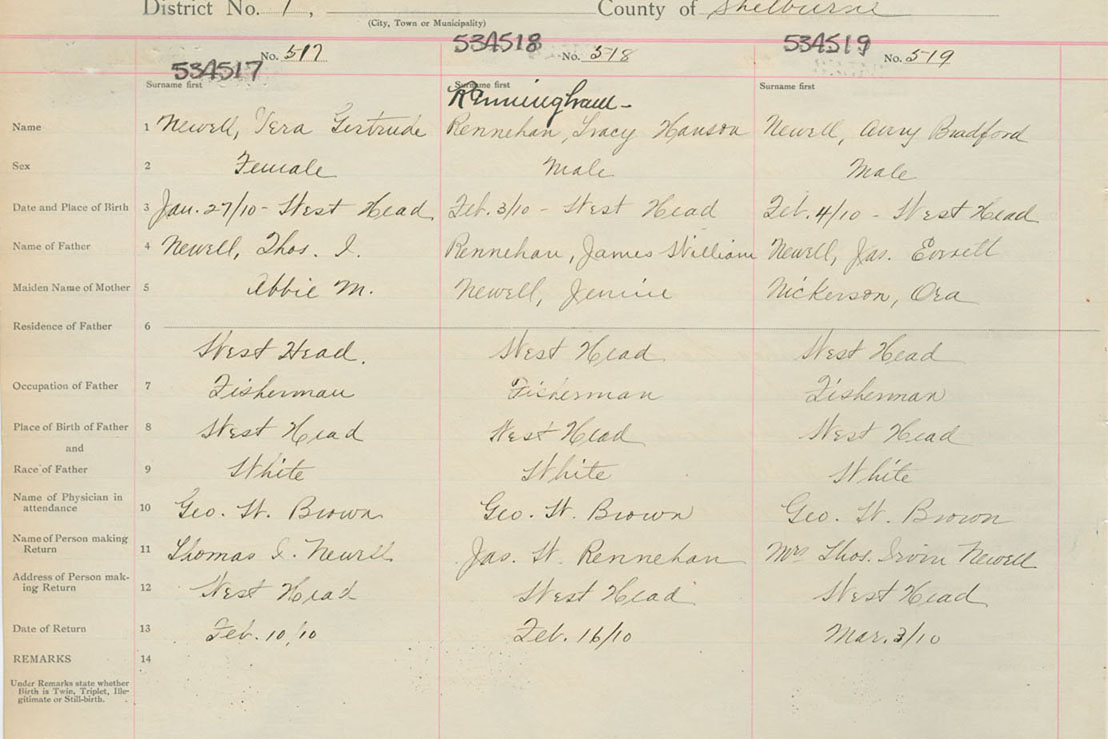 District No. 1, County of Shelburne
(City, Town or Municipality)
534517 No. 517 534518 No. 518 534519 No. 519
Surname first Surname first Surname first
Name 1 Newell, Vera Gertrude Rennehan, Tracy Hanson Newell, Avry Bradford
Sex 2 Female Male Male
Date and Place of Birth 3 Jan. 27/10 - West Head Feb. 3/10 - West Head Feb. 4/10 - West Head
Name of Father 4 Newell, Thos. I. Rennehan, James William Newell, Jas.
Maiden Name of Mother 5 Abbie M. Newell, Jennie Nickerson, Ora
Residence of Father 6
West Head. West Head West Head
Occupation of Father 7 Fisherman Fisherman Fisherman
Place of Birth of Father 8 West Head West Head West Head
and
Race of Father 9 White White White
Name of Physician in
attendance 10 Geo. W. Brown Geo. W. Brown Geo. W. Brown
Name of Person making
Return 11 Thomas I. Newell Jas. W. Rennehan Mrs Thos. Irvin Newell
Address of Person mak-
ing Return 12 West Head West Head West Head
Date of Return 13 Feb. 10/10 Feb. 16/10 Mar. 3/10
REMARKS 14
Under Remarks state whether
Birth is Twin, Triplet, Ille-
gitimate or Still-birth.